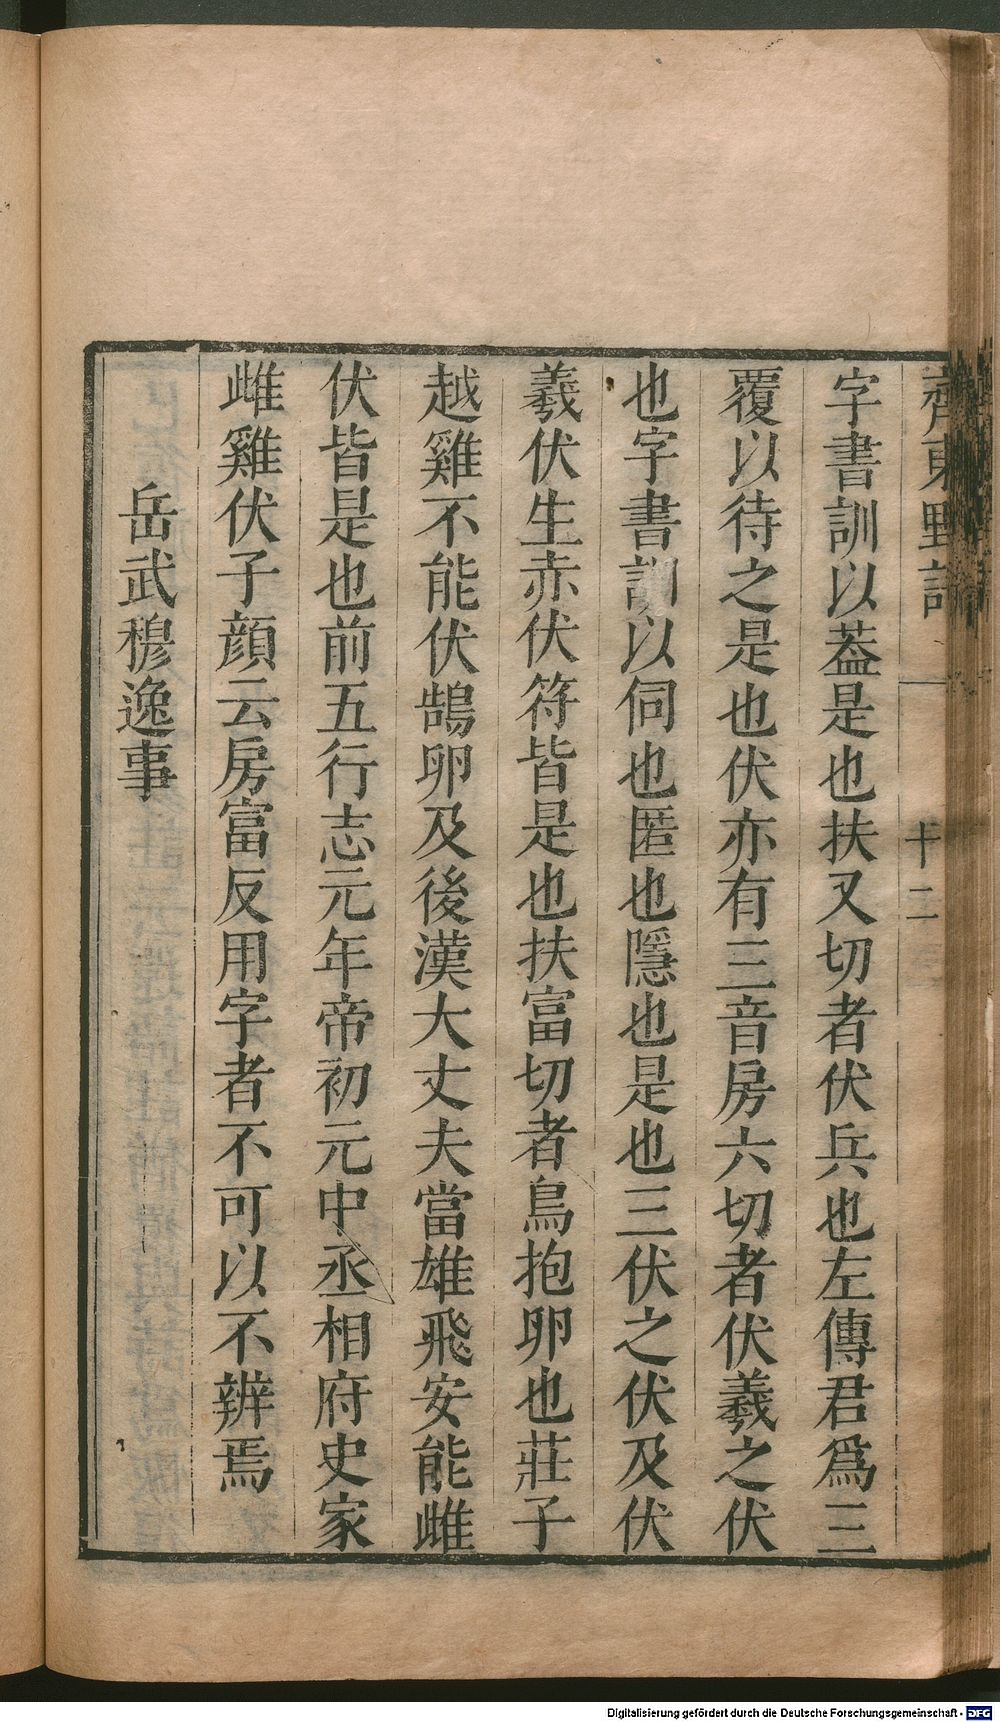 齊東野語
十二
字書訓以葢是也扶又切者伏兵也左傳君爲三
覆以待之是也伏亦有三音房六切者伏羲之伏
也字書訓以伺也匿也隱也是也三伏之伏及伏
羲伏生赤伏符皆是也扶富切者鳥抱卵也莊子
越雞不能伏鵠卵及後漢大丈夫當雄飛安能雌
伏皆是也前五行志元年帝初元中丞相府史家
雌雞伏子顔云房富反用字者不可以不辨焉
岳武穆逸事
Digitalisierung gefördert durch die Deutsche Forschungsgemeinschaft - DFG